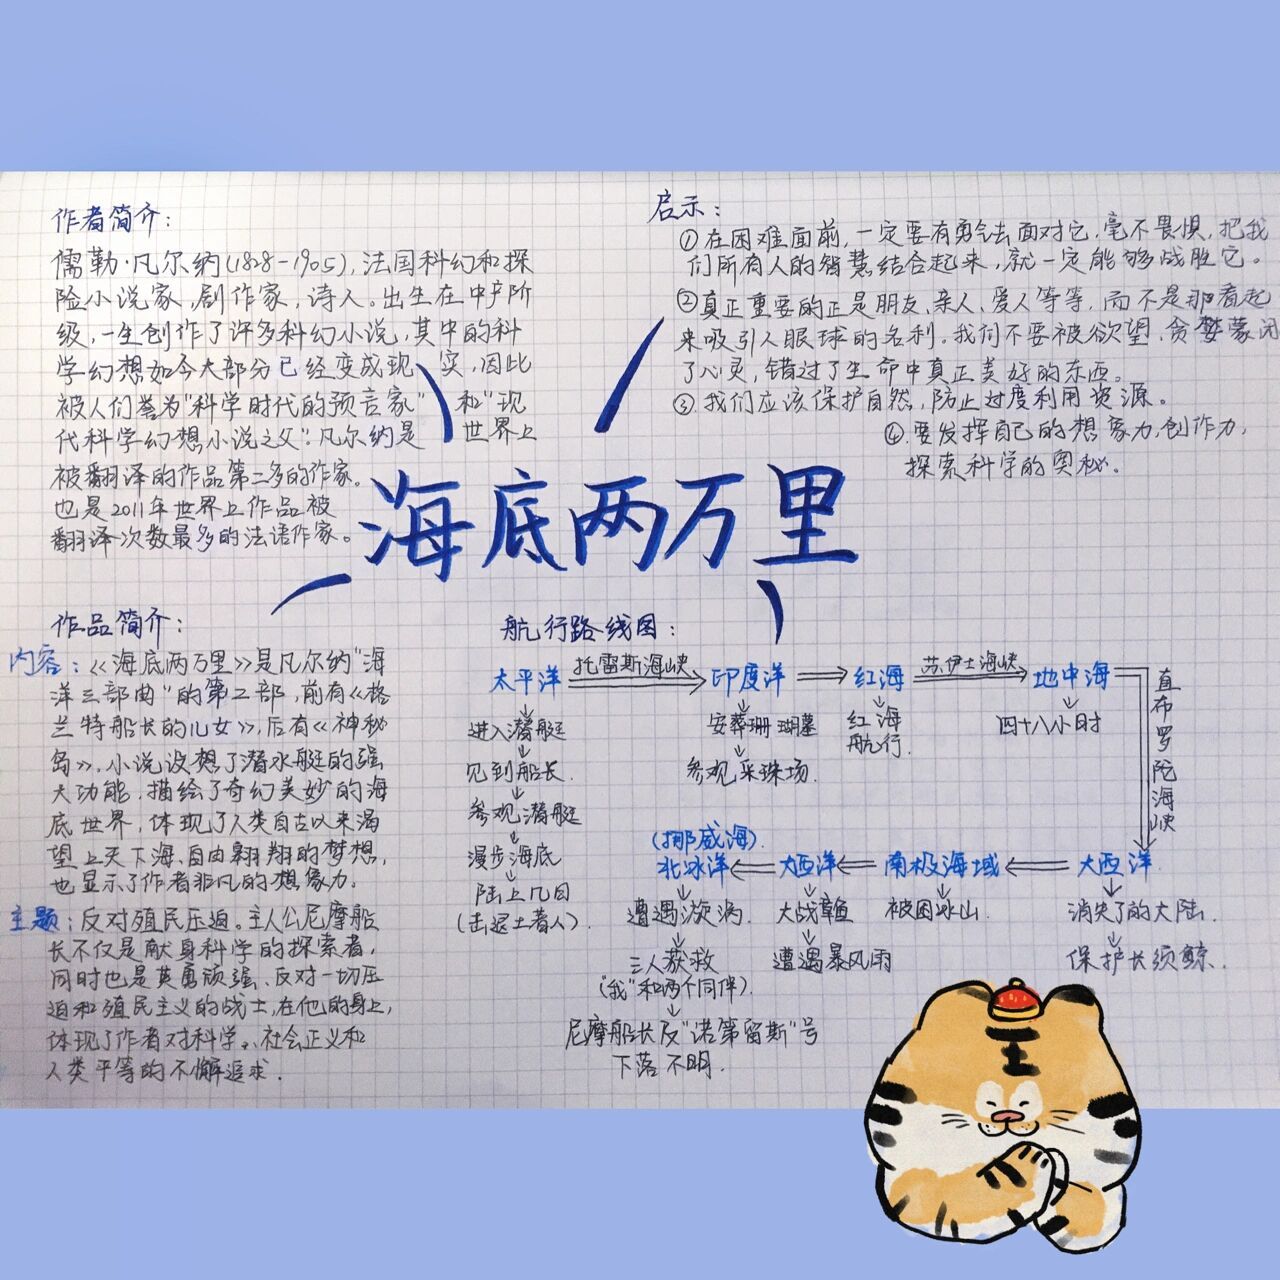 作者简介：
儒勒·凡尔纳(1828-1905)，法国科幻和探
险小说家，剧作家，诗人。出生在中产阶
级，一生创作了许多科幻小说，其中的科
学幻想如今大部分已经变成现实，因此
被人们誉为"科学时代的预言家"和"现
代科学幻想小说之父"。凡尔纳是世界上
被翻译的作品第二多的作家。
也是2011年世界上作品被
翻译次数最多的法语作家。
启示：
①在困难面前，一定要有勇气去面对它，毫不畏惧，把我
们所有人的智慧结合起来，就一定能够战胜它。
②真正重要的正是朋友、亲人、爱人等等，而不是那看起
来吸引人眼球的名利。我们不要被欲望，贪婪蒙闭
了心灵，错过了生命中真正美好的东西。
③我们应该保护自然，防止过度利用资源。
④要发挥自己的想象力，创作力，
探索科学的奥秘。
海底两万里
作品简介：
内容：《海底两万里》是凡尔纳"海
洋三部曲"的第二部，前有《格
兰特船长的儿女》，后有《神秘
岛》，小说设想了潜水艇的强
大功能，描绘了奇幻美妙的海
底世界，体现了人类自古以来渴
望上天下海、自由翱翔的梦想，
也显示了作者非凡的想象力。
主题：反对殖民压迫。主人公尼摩船
长不仅是献身科学的探索者，
同时也是英勇顽强、反对一切压
迫和殖民主义的战士，在他的身上，
体现了作者对科学，社会正义和
人类平等的不懈追求．
航行路线图：
太平洋 托雷斯海峡 印度洋 红海 苏伊士海峡 地中海
直布罗陀海峡
进入潜艇
见到船长．
参观潜艇
漫步海底
陆上几日
(击退土著人)．
安葬珊瑚墓
参观采珠场．
红海
航行．
四十八小时
(挪威海)．
北冰洋 大西洋 南极海域 大西洋
遭遇漩涡．
三人获救
("我"和两个同伴)．
尼摩船长及"诺第留斯"号
下落不明．
大战章鱼
遭遇暴风雨
被困冰山．
消失了的大陆．
保护长须鲸．
王